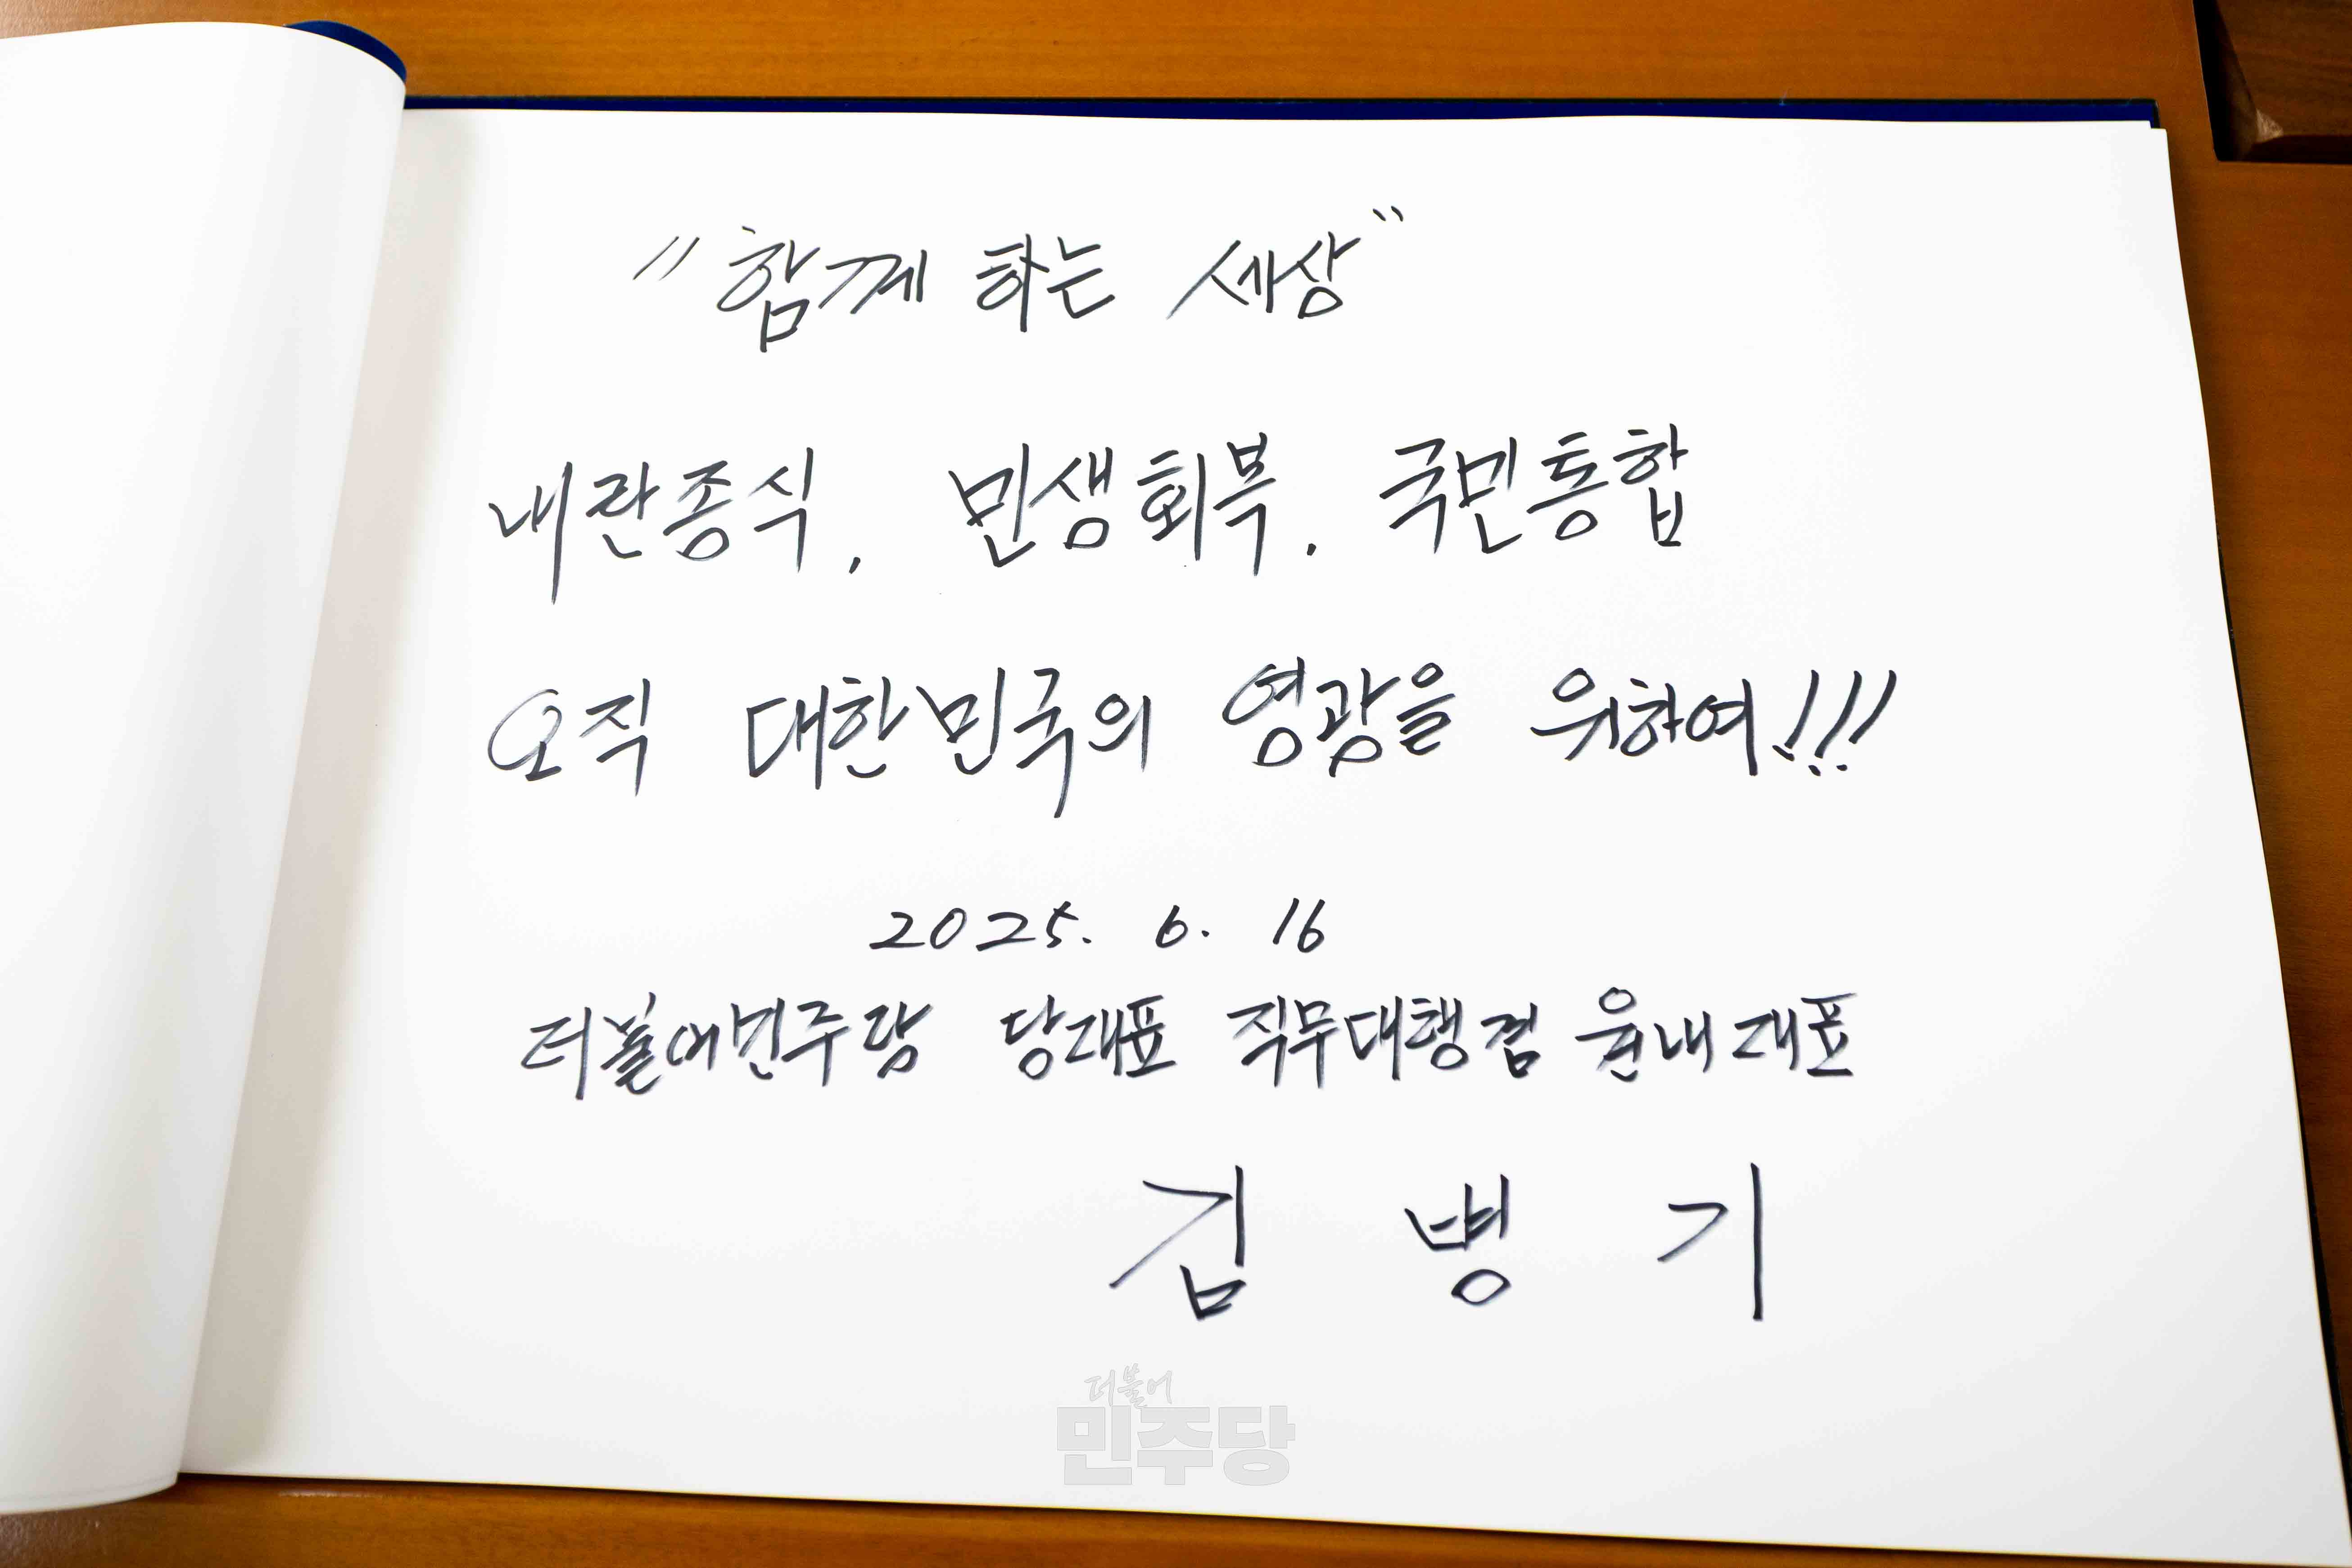 "함께 하는 세상"
내란종식, 민생회복, 국민통합
오직 대한민국의 영광을 위하여!!!
2025. 6. 16
더불어민주당 당대표 직무대행겸 원내대표
김병기
더불어
민주당